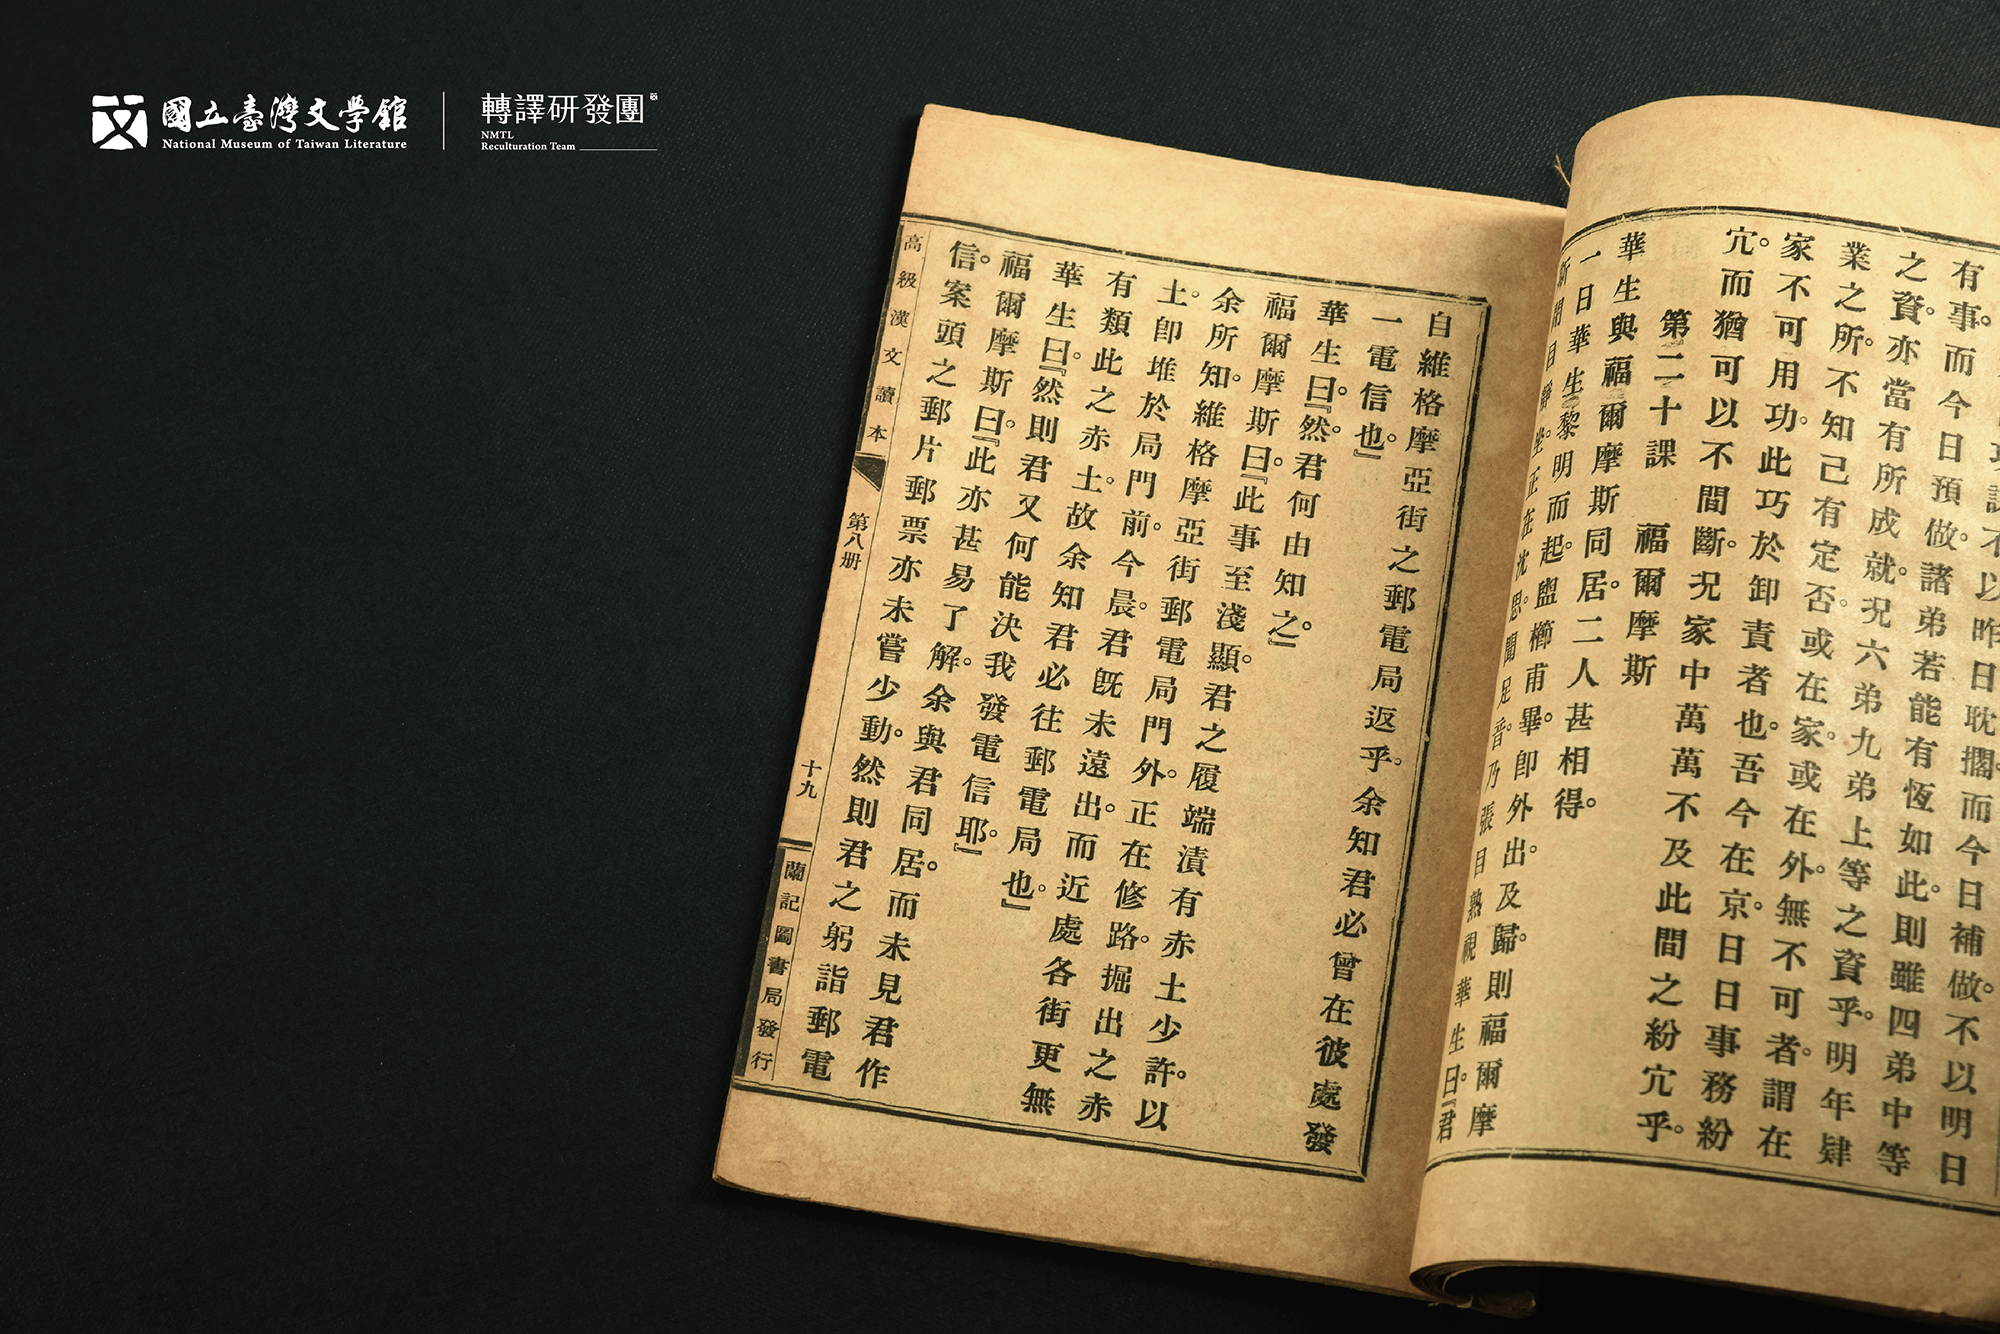 國立臺灣文學館
National Museum of Taiwan Literature
轉譯研發團
NMTL
Reculturation Team
課不以昨日耽擱。而今日補做。不以明日
有事。而今日預做。諸弟若能有恆如此。則雖四弟中等
之資。亦當有所成就。況六弟九弟上等之資乎。明年肄
業之所。不知己有定否。或在家。或在外。無不可者。謂在
家不可用功。此巧於卸責者也。吾今在京。日日事務紛
冗。而猶可以不間斷。況家中萬萬不及此間之紛冗乎。
第二十課　福爾摩斯
華生與福爾摩斯同居。二人甚相得。
一日華生黎明而起。盥櫛甫畢。卽外出。及歸。則福爾摩
斯閉目靜坐。正在沈思。聞足音。乃張目熟視華生曰。『君
自維格摩亞街之郵電局返乎。余知君必曾在彼處發
一電信也。』
華生曰。『然。君何由知之。』
福爾摩斯曰。『此事至淺顯。君之履端漬有赤土少許。以
余所知。維格摩亞街郵電局門外。正在修路。掘出之赤
土。卽堆於局門前。今晨君旣未遠出。而近處各街更無
有類此之赤土。故余知君必往郵電局也。』
華生曰。『然則君又何能決我發電信耶。』
福爾摩斯曰。『此亦甚易了解。余與君同居。而未見君作
信。案頭之郵片郵票亦未嘗少動。然則君之躬詣郵電
高級漢文讀本　第八册　十九　蘭記圖書局發行